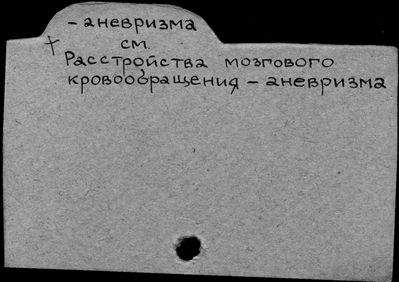 - аневризма
см.
Расстройства мозгового
кровообращения - аневризма